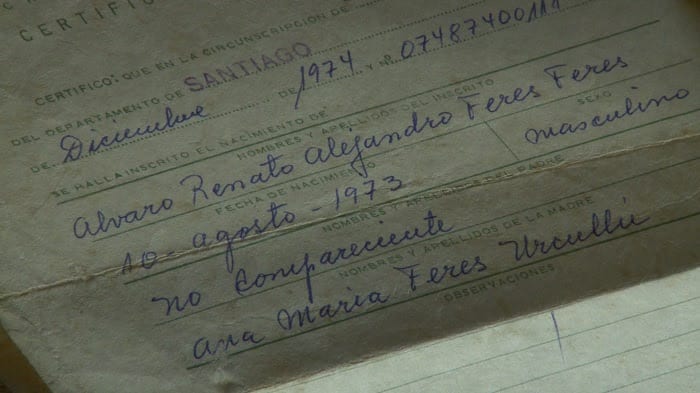 CERTIFI
CERTIFICO: QUE EN LA CIRCUNSCRIPCION DE
DEL DEPARTAMENTO DE SANTIAGO
DE Diciembre DE 1974 Y Nº
SE HALLA INSCRITO EL NACIMIENTO DE
NOMBRES Y APELLIDOS DEL INSCRITO
Alvaro Renato Alejandro Feres Feres
FECHA DE NACIMIENTO SEXO
10 - agosto - 1973 masculino
NOMBRES Y APELLIDOS DEL PADRE
no compareciente
NOMBRES Y APELLIDOS DE LA MADRE
Ana Maria Feres Urcullú
OBSERVACIONES